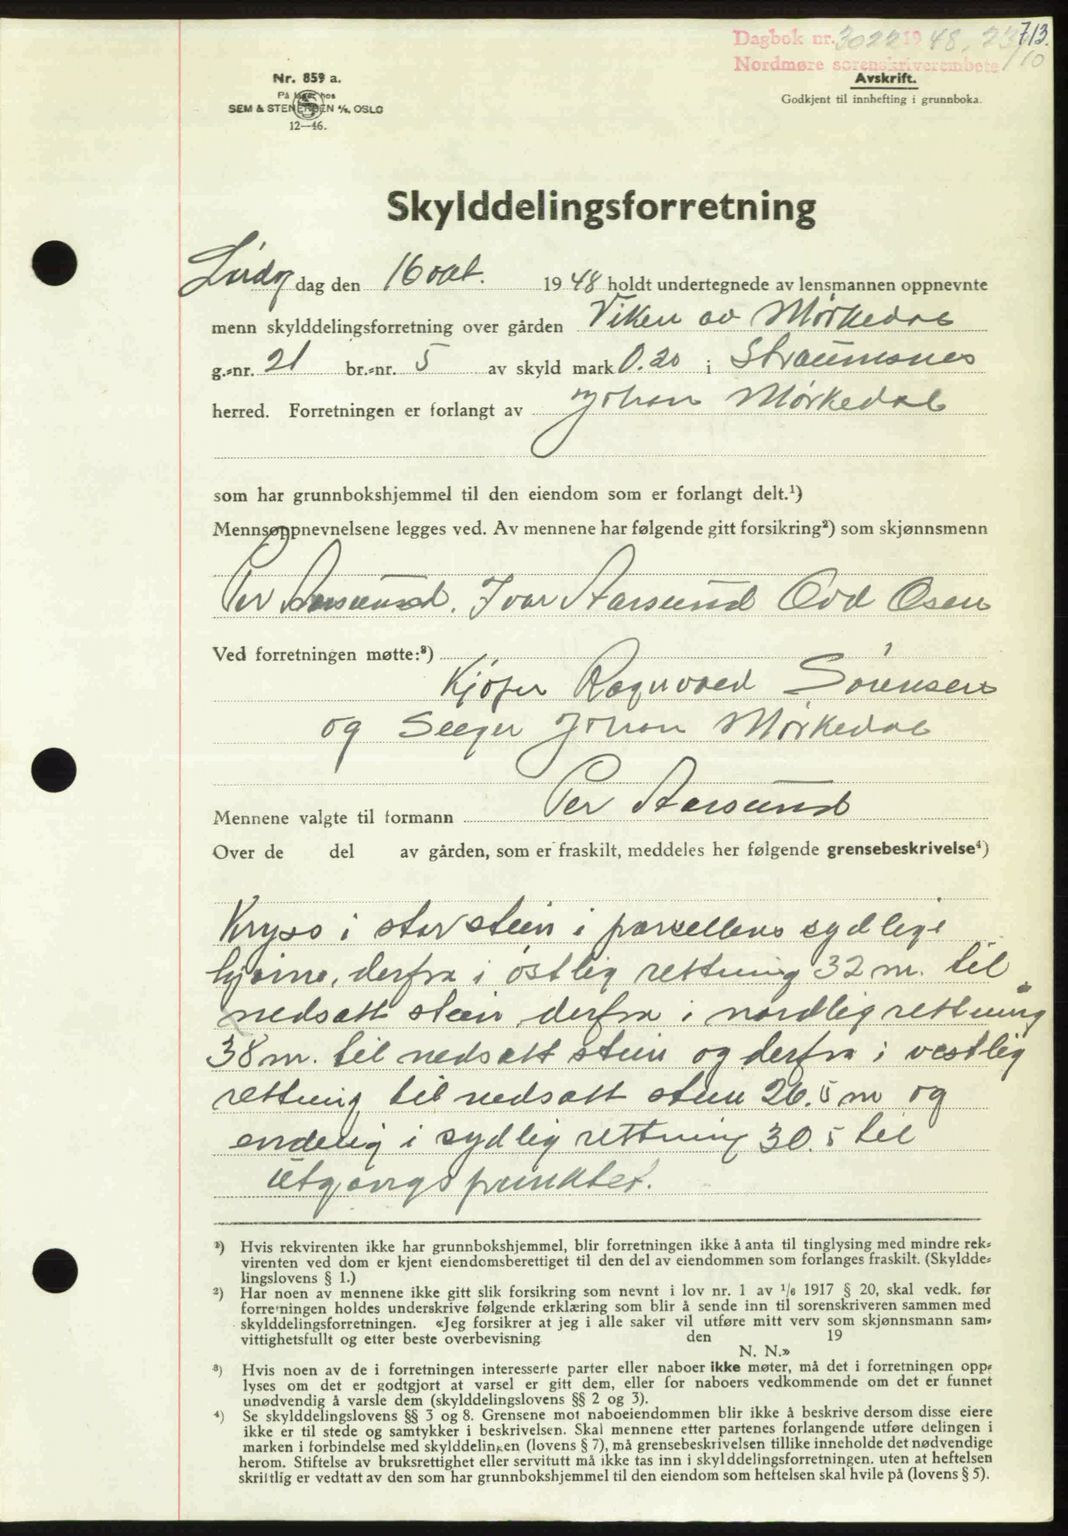 713.
Dagbok nr. 3022 1948, 23/10
Nordmøre sorenskriverembete
Nr. 859 a.
På lager hos
SEM & STENERSEN A/S, OSLO
12—46.
Avskrift.
Godkjent til innhefting i grunnboka.
Skylddelingsforretning
Lørdag dag den 16 okt. 1948 holdt undertegnede av lensmannen oppnevnte
menn skylddelingsforretning over gården Viken av Mørkedal
g.-nr. 21 br.-nr. 5 av skyld mark 0.20 i Straumsnes
herred. Forretningen er forlangt av Johan Mørkedal
som har grunnbokshjemmel til den eiendom som er forlangt delt.¹)
Mennsoppnevnelsene legges ved. Av mennene har følgende gitt forsikring²) som skjønnsmenn
Per Aarsund. Ivar Aarsund Odd Osen
Ved forretningen møtte:³)
Kjøper Ragnvald Sørensen
og Selger Johan Mørkedal
Mennene valgte til formann Per Aarsund
Over de del av gården, som er fraskilt, meddeles her følgende grensebeskrivelse⁴)
Kryss i stor stein i parsellens sydlige
hjørne, derfra i østlig rettning 32 m. til
nedsatt stein derfra i nordlig rettning
38 m. til nedsatt stein og derfra i vestlig
rettning til nedsatt stein 26.5 m og
endelig i sydlig rettning 30.5 til
utgangspunktet.
¹) Hvis rekvirenten ikke har grunnbokshjemmel, blir forretningen ikke å anta til tinglysing med mindre rek-
virenten ved dom er kjent eiendomsberettiget til den del av eiendommen som forlanges fraskilt. (Skyldde-
lingslovens § 1.)
²) Har noen av mennene ikke gitt slik forsikring som nevnt i lov nr. 1 av ¹/₆ 1917 § 20, skal vedk. før
forretningen holdes underskrive følgende erklæring som blir å sende inn til sorenskriveren sammen med
skylddelingsforretningen. «Jeg forsikrer at jeg i alle saker vil utføre mitt verv som skjønnsmann sam-
vittighetsfullt og etter beste overbevisning den 19
N. N.»
³) Hvis noen av de i forretningen interesserte parter eller naboer ikke møter, må det i forretningen opp-
lyses om det er godtgjort at varsel er gitt dem, eller for naboers vedkommende om det er funnet
unødvendig å varsle dem (skylddelingslovens §§ 2 og 3).
⁴) Se skylddelingslovens §§ 3 og 8. Grensene mot naboeiendommen blir ikke å beskrive dersom disse eiere
ikke er til stede og samtykker i beskrivelsen. Skal mennene etter partenes forlangende utføre delingen i
marken i forbindelse med skylddelingen (lovens § 7), må grensebeskrivelsen tillike inneholde det nødvendige
herom. Stiftelse av bruksrettighet eller servitutt må ikke tas inn i skylddelingsforretningen, uten at heftelsen
skriftlig er vedtatt av den som har grunnbokshjemmel til den eiendom som heftelsen skal hvile på (lovens § 5).